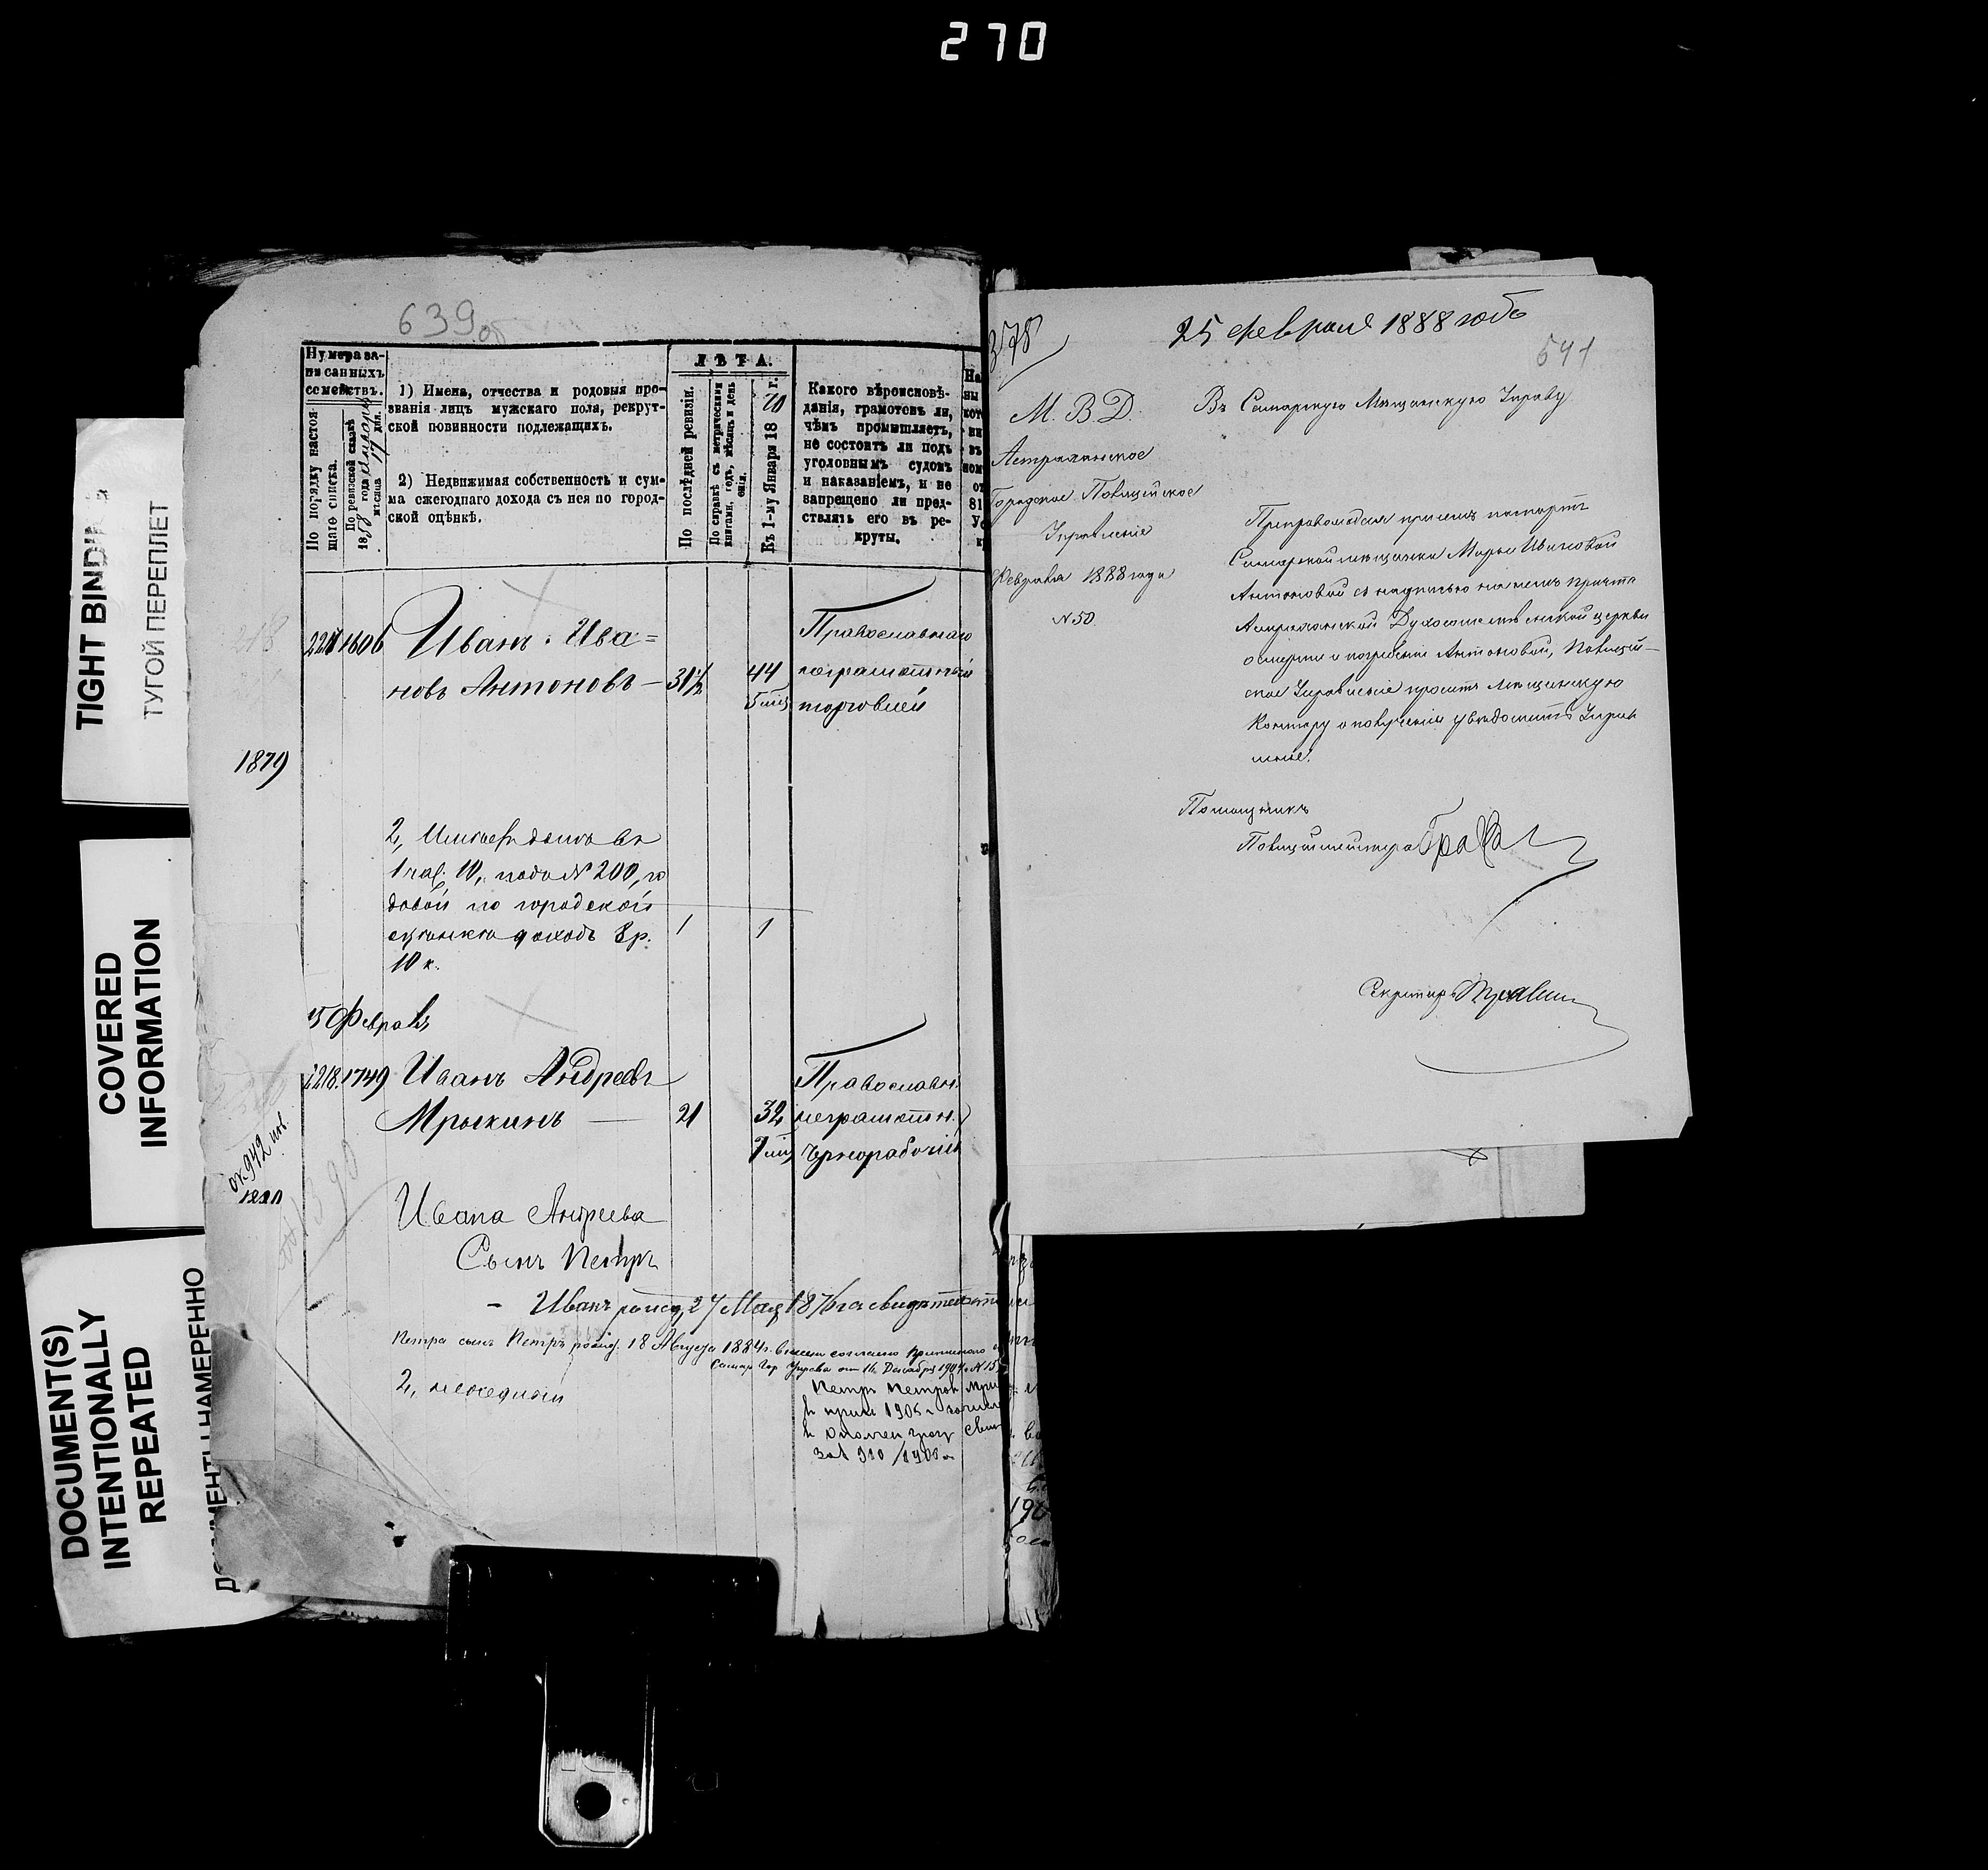 270
TIGHT BINDING
ТУГОЙ ПЕРЕПЛЕТ
COVERED
INFORMATION
DOCUMENT(S)
INTENTIONALLY
REPEATED
НАМЕРЕННО
639 об
Нумера за-
писанныхъ
семействъ.
По порядку настоя-
щаго списка.
По ревизской сказкѣ
18 года
мѣсяца дня.
1) Имена, отчества и родовыя про-
званія лицъ мужскаго пола, рекрут-
ской повинности подлежащихъ.
2) Недвижимая собственность и сум-
ма ежегоднаго дохода съ нея по город-
ской оцѣнкѣ.
ЛѢТА.
По послѣдней ревизіи.
По справкѣ съ метрическими
книгами, годъ, мѣсяцъ и день
Къ 1-му Января 1870 г.
Какого вѣроисповѣ-
данія, грамотенъ ли,
чѣмъ промышляетъ,
не состоитъ ли подъ
уголовнымъ судомъ
и наказаніемъ, и не
запрещено ли пред-
ставлять его въ ре-
круты.
218
1606 Иванъ Ива=
новъ Антоновъ — 31½ 44
Православнаго
неграмотный
торговлей
1879
2, Имѣетъ домъ въ
1 час. 10, подъ № 200, го
довой по городской
оцѣнкѣ доходъ 8 р.
10 к.
1 1
15 Февраля
2218. 1749 Иванъ Андреевъ
Мрыкинъ — 21 32
Православн.
неграмотн.
Чернорабочій
1390
Ивана Андреева
Сынъ Петръ
- Иванъ рожд. 27 Мая
Петра сынъ Петръ рожд. 18 Августа 1884 г. внесен согласно
Самар Гор Управы от 16 Декабря 1904 г. № 15
2, неимѣетъ
Петръ Петров
1906 г.
310/1906 г.
378
25 февраля 1888 года
541
М. В. Д.
Астраханское
Городское Полицейское
Управленіе
Февраля 1888 года
№ 50.
Въ Самарскую Мѣщанскую Управу
Препровождая присемъ паспортъ
Самарской мѣщанки Марьи Ивановой
Антоновой съ надписью на немъ причта
Астраханской церкви
о смерти и погребеніи Антоновой, Полицей-
ское Управленіе проситъ Мѣщанскую
Контору о полученіи увѣдомить Управ
леніе.
Помощникъ
Полицеймейстера
Секретарь